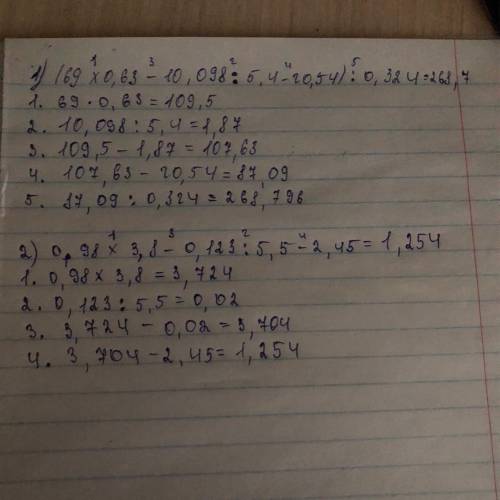 1) (69 × 0,63 - 10,098 : 5,4 - 20,54) : 0,324 = 268,7
1. 69 · 0,63 = 109,5
2. 10,098 : 5,4 = 1,87
3. 109,5 - 1,87 = 107,63
4. 107,63 - 20,54 = 87,09
5. 87,09 : 0,324 = 268,796
2) 0,98 × 3,8 - 0,123 : 5,5 - 2,45 = 1,254
1. 0,98 × 3,8 = 3,724
2. 0,123 : 5,5 = 0,02
3. 3,724 - 0,02 = 3,704
4. 3,704 - 2,45 = 1,254